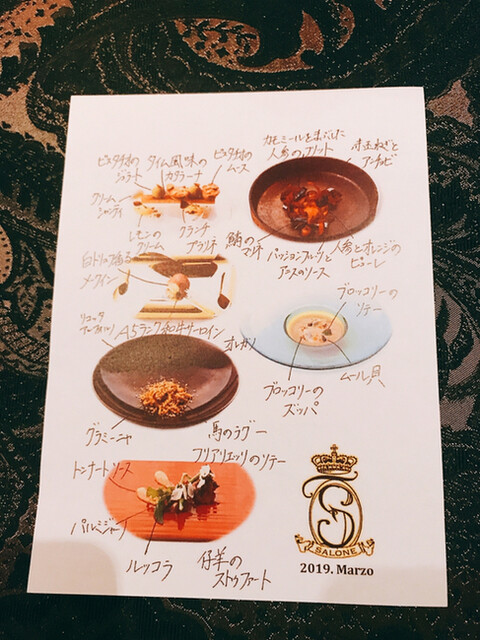 ピスタチオの
ジェラート
タイム風味の
カタラーナ
ピスタチオの
ムース
カモミールをまぶした
人参のフリット
赤玉ねぎと
アンチョビ
クリーム
シャンティ
レモンの
クリーム
クランチ
鯖の
マリネ
パッションフルーツと
アニスのソース
人参とオレンジの
ピューレ
白トリュフ香る
メークイン
ブロッコリーの
ソテー
リコッタ
A5ランク和牛サーロイン
オレガノ
ブロッコリーの
ズッパ
ムール貝
グラミーニャ
馬のラグー
フリアリエッリのソテー
トンナートソース
パルミジャーノ
ルッコラ
仔羊の
ストゥファート
S
SALONE
2019. Marzo